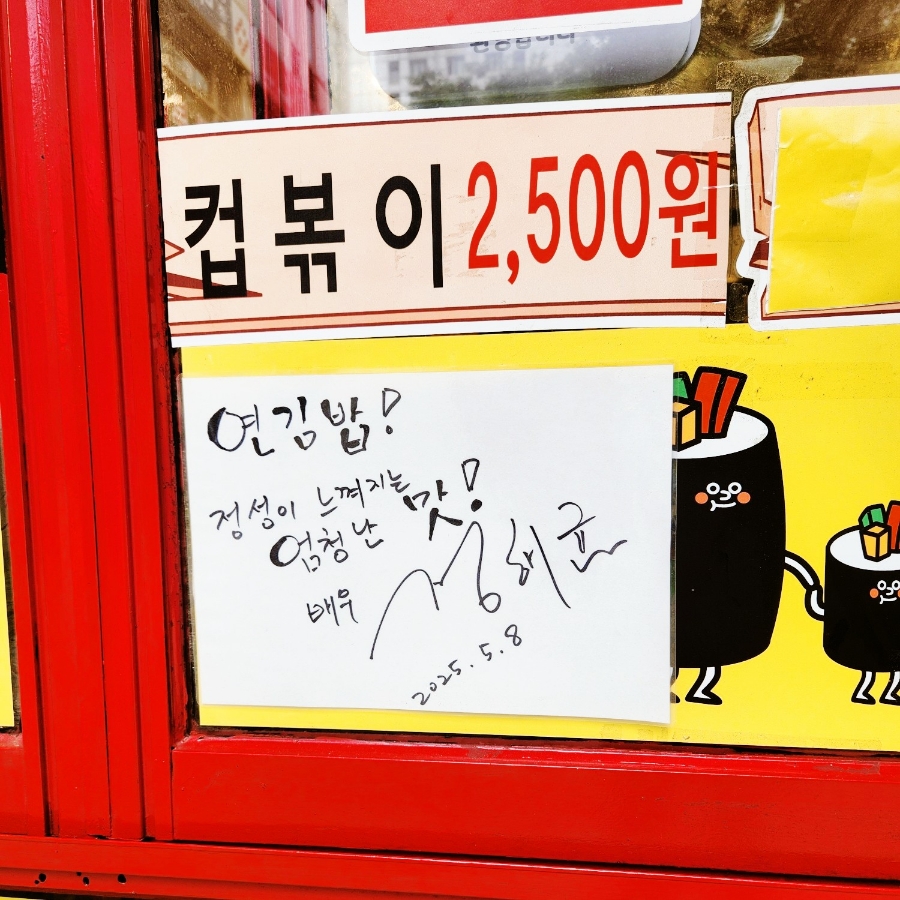 컵볶이 2,500원
연김밥!
정성이 느껴지는
엄청난 맛!
배우
2025.5.8